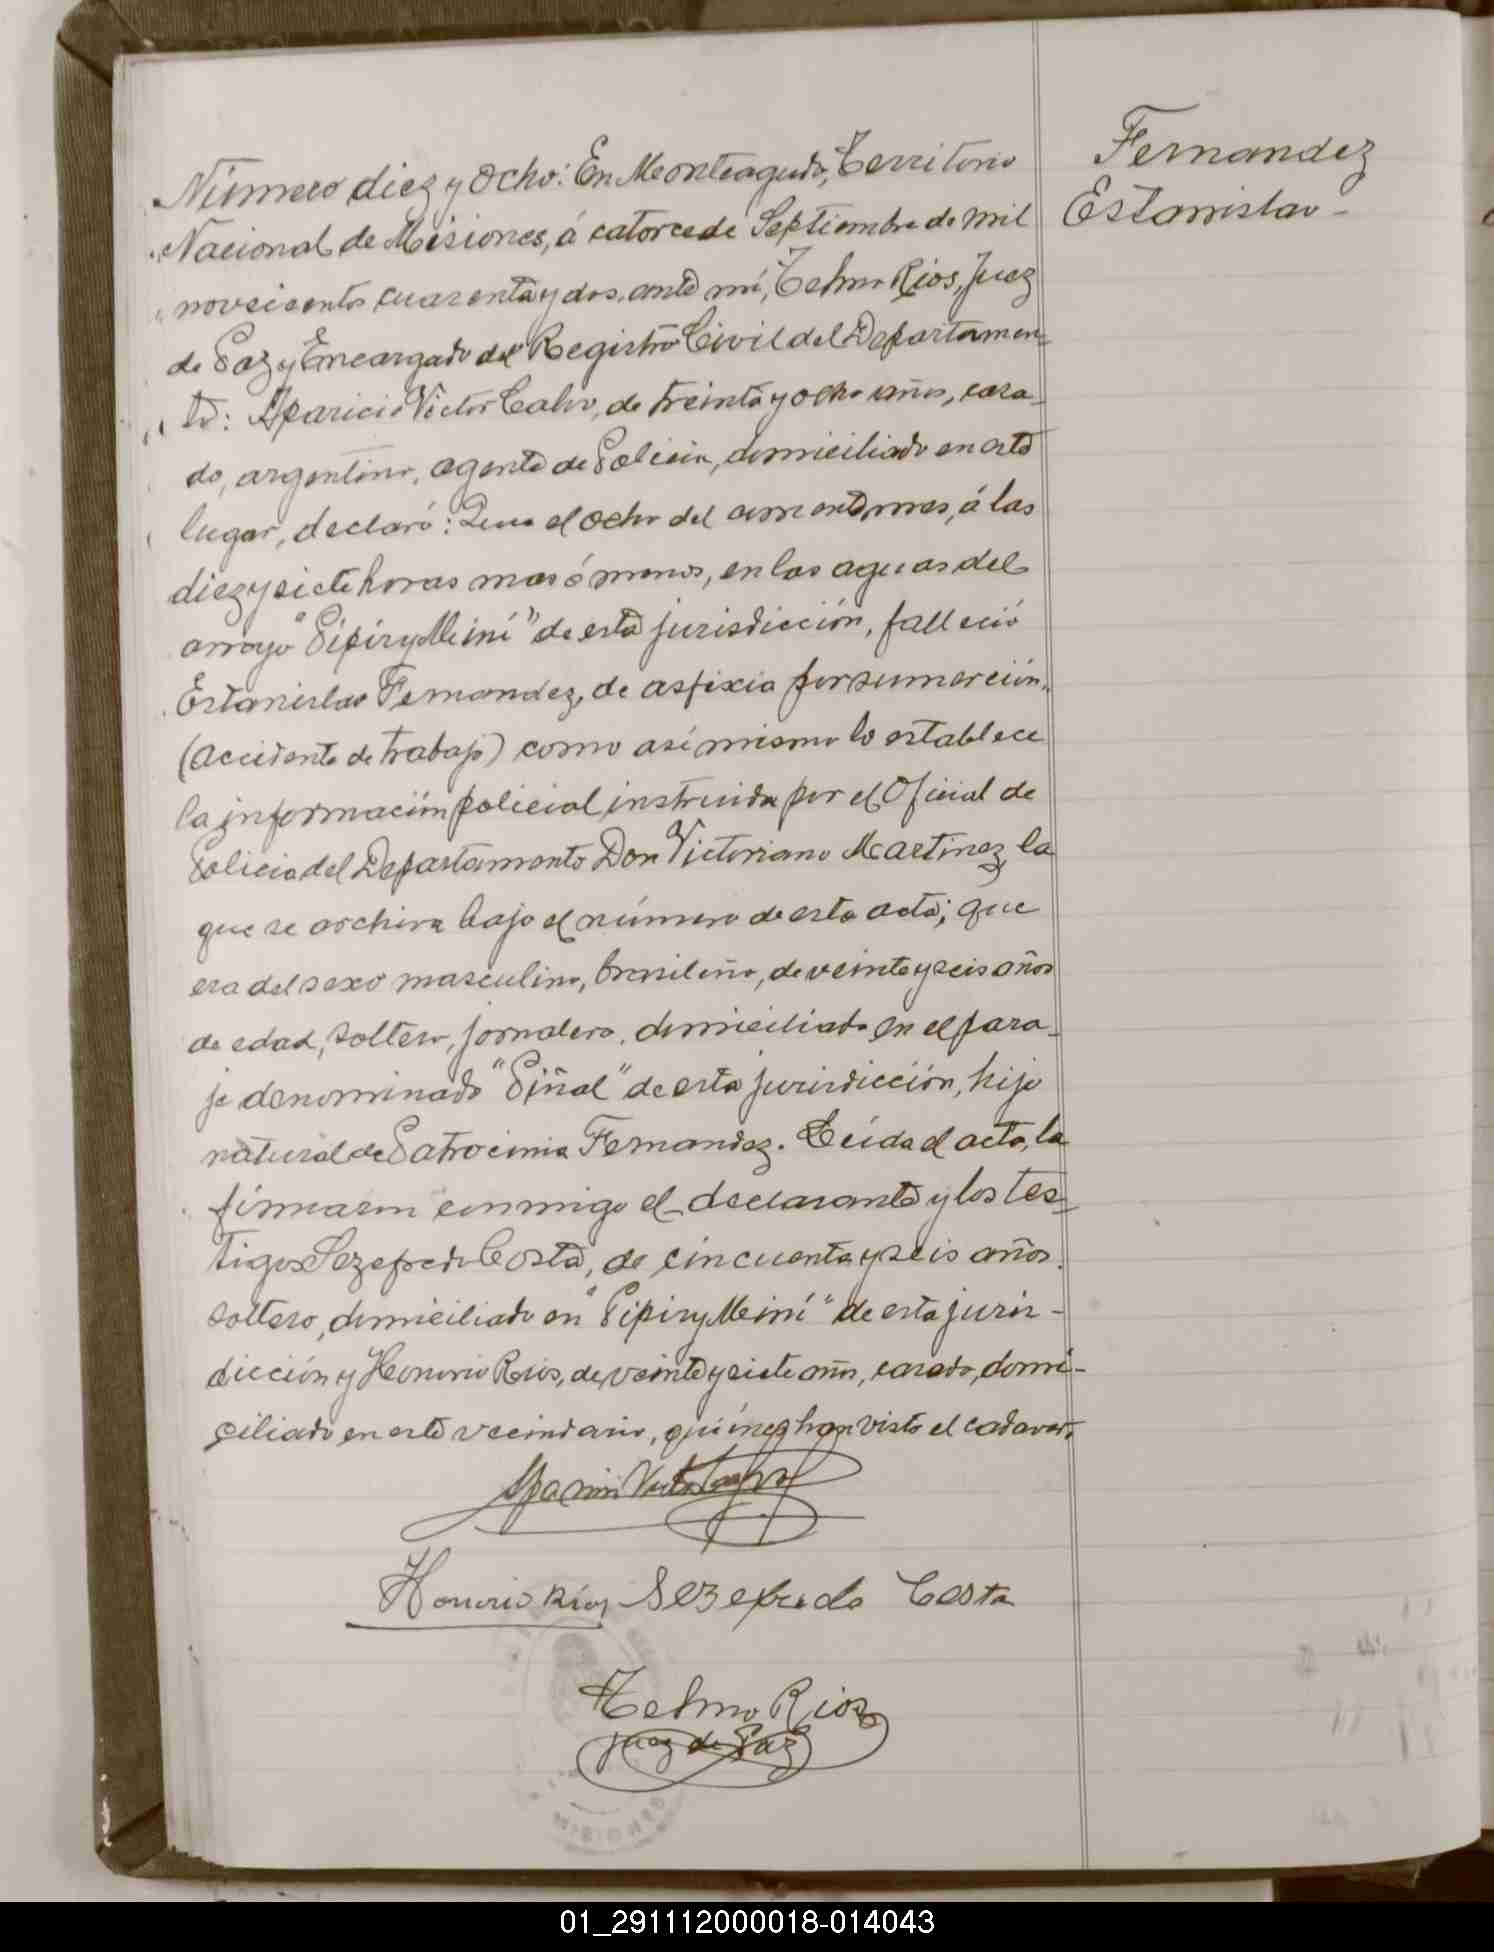 Fernandez
Estanislao -
Número diez y ocho: En Monteagudo, Territorio
Nacional de Misiones, á catorce de Septiembre de mil
novecientos cuarenta y dos, ante mí, Telmo Rios, Juez
de Paz y Encargado del Registro Civil del Departamen=
to: Aparicio Victor Calvo, de treinta y ocho años, casa-
do, argentino, agente de Policia, domiciliado en este
lugar, declaró: Que el ocho del corriente mes, á las
diez y siete horas mas ó menos, en las aguas del
arroyo "Pipiry Meiní" de esta jurisdicción, falleció
Estanislao Fernandez, de asfixia por sumerción
(accidente de trabajo) como asi mismo lo establece
la información policial instruida por el Oficial de
Policia del Departamento Don Victoriano Martinez, la
que se archiva bajo el número de esta acta; que
era del sexo masculino, brasileño, de veinte y seis años
de edad, soltero, jornalero, domiciliado en el para-
je denominado "Piñal" de esta jurisdicción, hijo
natural de Patrocinia Fernandez. Leida el acta, la
firmaron conmigo el declarante y los tes=
tigos Sezefredo Costa, de cincuenta y seis años,
soltero, domiciliado en "Pipiry Meiní" de esta juris-
dicción y Honorio Rios, de veinte y siete años, casado, domi-
ciliado en este vecindario, quiénes han visto el cadaver.
Honorio Rios Sezefredo Costa
Telmo Rios
Juez de Paz
01_291112000018-014043